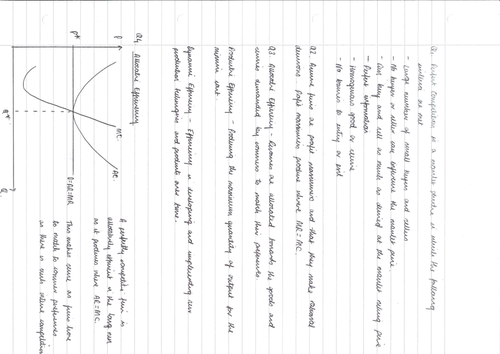 Q1. Perfect Competition is a market structure in which the following
criteria are met
- Large number of small buyers and sellers
- No buyer or seller can influence the market price
- Can buy and sell as much as desired at the market ruling price
- Perfect information
- Homogenous good or service
- No barriers to entry or exit
Q2. Assume firms are profit maximisers and that they make rational
decisions profit maximisers produce where MR=MC.
Q3 Allocative Efficiency - Resources are allocated towards the goods and
services demanded by consumers to match their preferences.
Productive Efficiency - Producing the maximum quantity of output for the
minimum cost.
Dynamic Efficiency - Efficiency in developing and implementing new
production techniques and products over time.
Q4 Allocative Efficiency
P
MC
AC
P*
D=AR=MR
Q*
Q
A perfectly competitive firm is
allocatively efficient in the long run
as it produces where AR=MC.
This makes sense as firms have
to match to consumer preferences
as there is such intense competition